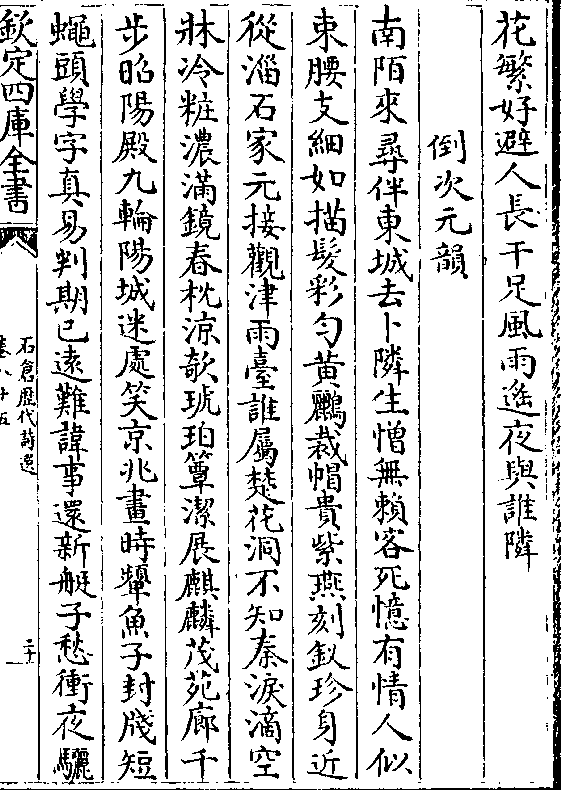 花繁好避人長干足風雨遙夜與誰隣
倒次元韻
南陌來尋伴東城去卜隣生憎無賴客死憶有情人似
束腰支細如描髮彩勻黃鸝裁帽貴紫燕刻釵珍身近
從淄石家元接觀津雨臺誰屬楚花洞不知秦淚滴空
牀冷粧濃滿鏡春枕涼欹琥珀簟潔展麒麟茂苑廊千
步昭陽殿九輪陽城迷處笑京兆畫時顰魚子封牋短
蠅頭學字真易判期已遠難諱事還新艇子愁衝夜驪
欽定四庫全書
石倉歷代詩選
卷八十五
二十